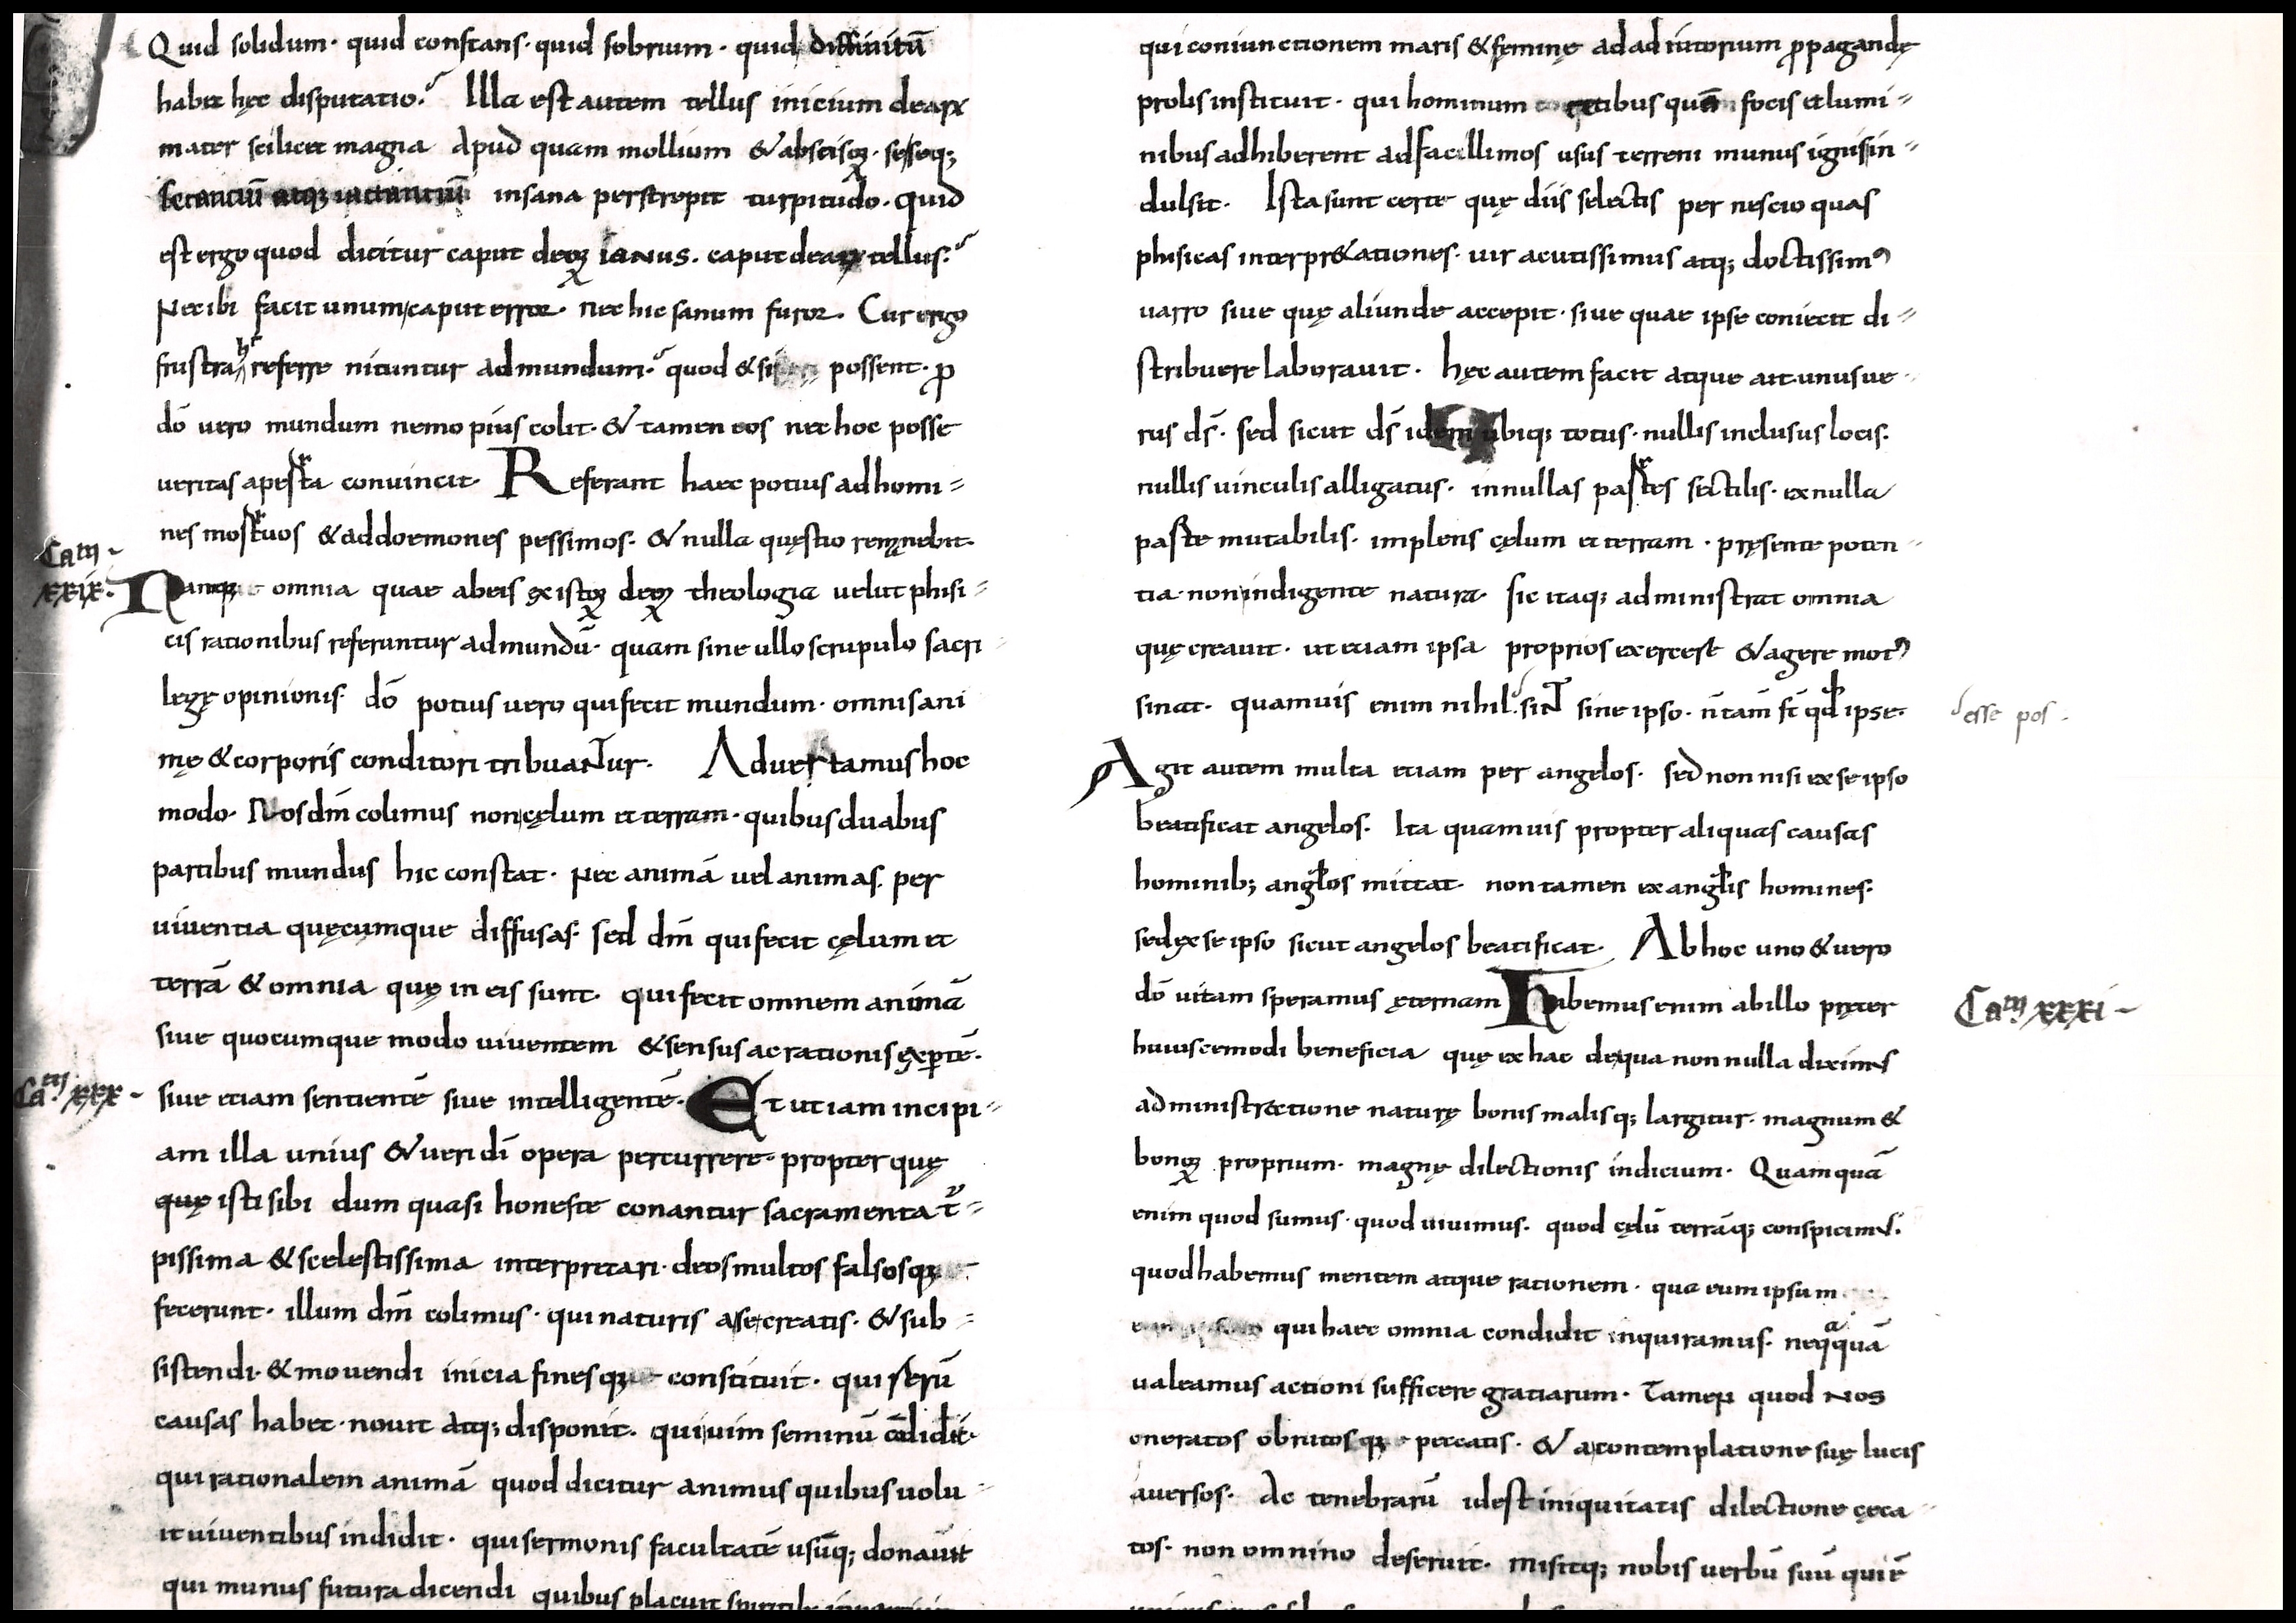 Quid solidum· quid constans· quid sobrium· quid diffinitū
habet hęc disputatio? Illa est autem tellus inicium dearꝝ
mater scilicet magna Apud quam mollium & abscisoꝝ· seseq;
secantiū atq; iactantiū insana perstrepit turpitudo· quid
est ergo quod dicitur caput deoꝝ ianus. caput dearꝝ tellus?
Nec ibi facit unum caput error· nec hic sanum furor. Cur ergo
frustra hęc referre nituntur ad mundum? quod & si possent· ꝓ
dō vero mundum nemo pius colit· & tamen eos nec hoc posse
veritas aperta convincit· Referant haec potius ad homi=
nes mortuos & ad doemones pessimos· & nulla quęstio remąnebit·
Cam̄
XXIX· Namq; omnia quae ab eis ęx istoꝝ deoꝝ theologia velut phisi=
cis rationibus referuntur ad mundū· quam sine ullo scrupulo sacri
legę opinionis· dō potius vero qui fecit mundum· omnis ani
mę & corporis conditori tribuaNTur· Advertamus hoc
modo· Nos dm̄ colimus non cęlum et terram· quibus duabus
partibus mundus hic constat· Nec animā vel animas· per
viventia quęcumque diffusas· sed dm̄ qui fecit cęlum et
terrā & omnia quę in eis sunt· qui fecit omnem animā
sive quocumque modo viventem & sensus ac rationis ęxꝑtē·
Cam̄ xxx sive etiam sentientē sive intelligentē· Et ut iam incipi=
am illa unius & veri dī opera percurrere· propter quę
quę isti sibi dum quasi honeste conantur sacramenta t̄=
pissima & scelestissima interpretari· deos multos falsosq;
fecerunt· illum dm̄ colimus· qui naturis a se creatis· & sub=
sistendi· & movendi inicia finesq; constituit· qui rerū
causas habet· novit atq; disponit· qui vim seminū cōdidit·
qui rationalem animā quod dicitur animus quibus volu
it viventibus indidit· qui sermonis facultatē usūq; donavit
qui munus futura dicendi quibus placuit
qui coniunctionem maris & fęminę ad adiutorium ꝓpagandę
prolis instituit· qui hominum coetibus quē focis et lumi=
nibus adhiberent ad facillimos usus terreni munus ignis in=
dulsit· Ista sunt certe quę diis selectis per nescio quas
phisicas interpr&ationes· vir acutissimus atq; doctissimꝰ
varro sive quę aliunde accepit· sive quae ipse coniecit di=
stribuere laboravit· hęc autem facit atque ait· unus ve
rus dš· sed sicut dš idem ubiq; totus· nullis inclusus locis·
nullis vinculis alligatus· in nullas partes sectilis· ex nulla
parte mutabilis· implens cęlum et terram· pręsente poten=
tia non indigente natura· sic itaq; administrat omnia
quę creavit· ut etiam ipsa proprios exercere & agere motꝰ
sinat· quamvis enim nihil· siNT sine ipso· n̄ tam̄ sī qđ ipse· esse pos·
Agit autem multa etiam per angelos· sed non nisi ex se ipso
beatificat angelos· Ita quamvis propter aliquas causas
hominib; angłos mittat· non tamen ex angłis homines·
sed ęx se ipso sicut angelos beatificat· Ab hoc uno & vero
dō vitam speramus ęternam habemus enim ab illo pręter Cam̄ xxxi
huiuscemodi beneficia quę ex hac de qua nonnulla diximꝰ
administratione naturę bonis malisq; largitur· magnum &
bonoꝝ proprium· magnę dilectionis indicium· Quamquā
enim quod sumus· quod vivimus· quod cęlū terrāq; conspicimꝰ·
quod habemus mentem atque rationem· qua eum ipsum
qui haec omnia condidit inquiramus· neqͣquā
valeamus actioni sufficere gratiarum· Tamen quod nos
oneratos obrutosq; peccatis· & a contemplatione suę lucis
aversos· Ac tenebrarū id est iniquitatis dilectione cęca
tos· non omnino deseruit· misitq; nobis verbū suū qui ē